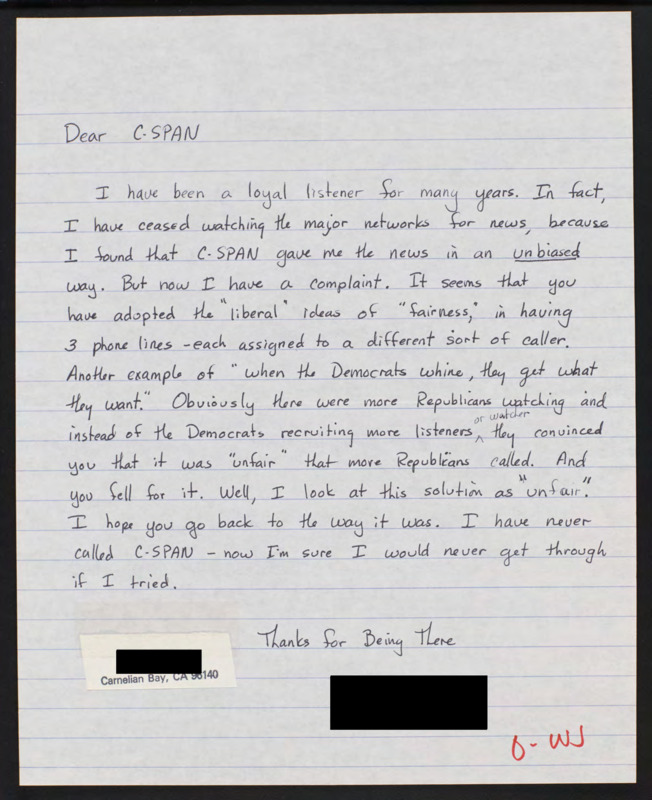 Dear C-SPAN
I have been a loyal listener for many years. In fact,
I have ceased watching the major networks for news, because
I found that C-SPAN gave me the news in an unbiased
way. But now I have a complaint. It seems that you
have adopted the "liberal" ideas of "fairness," in having
3 phone lines - each assigned to a different sort of caller.
Another example of "when the Democrats whine, they get what
they want." Obviously there were more Republicans watching and
or watcher
instead of the Democrats recruiting more listeners ^ they convinced
you that it was "unfair" that more Republicans called. And
you fell for it. Well, I look at this solution as "unfair".
I hope you go back to the way it was. I have never
called C-SPAN - now I'm sure I would never get through
if I tried.
Thanks for Being There
Carnelian Bay, CA 96140